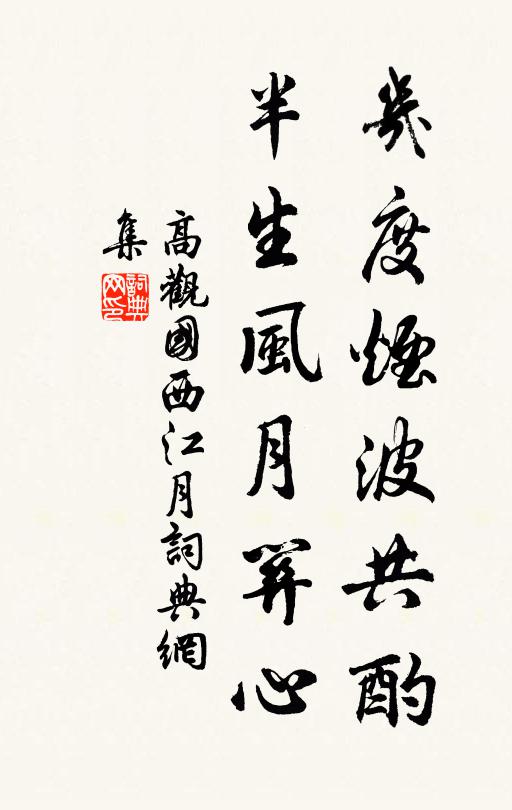 幾度煙波共酌
半生風月關心
高觀國西江月詞典網
集
詞典
网印